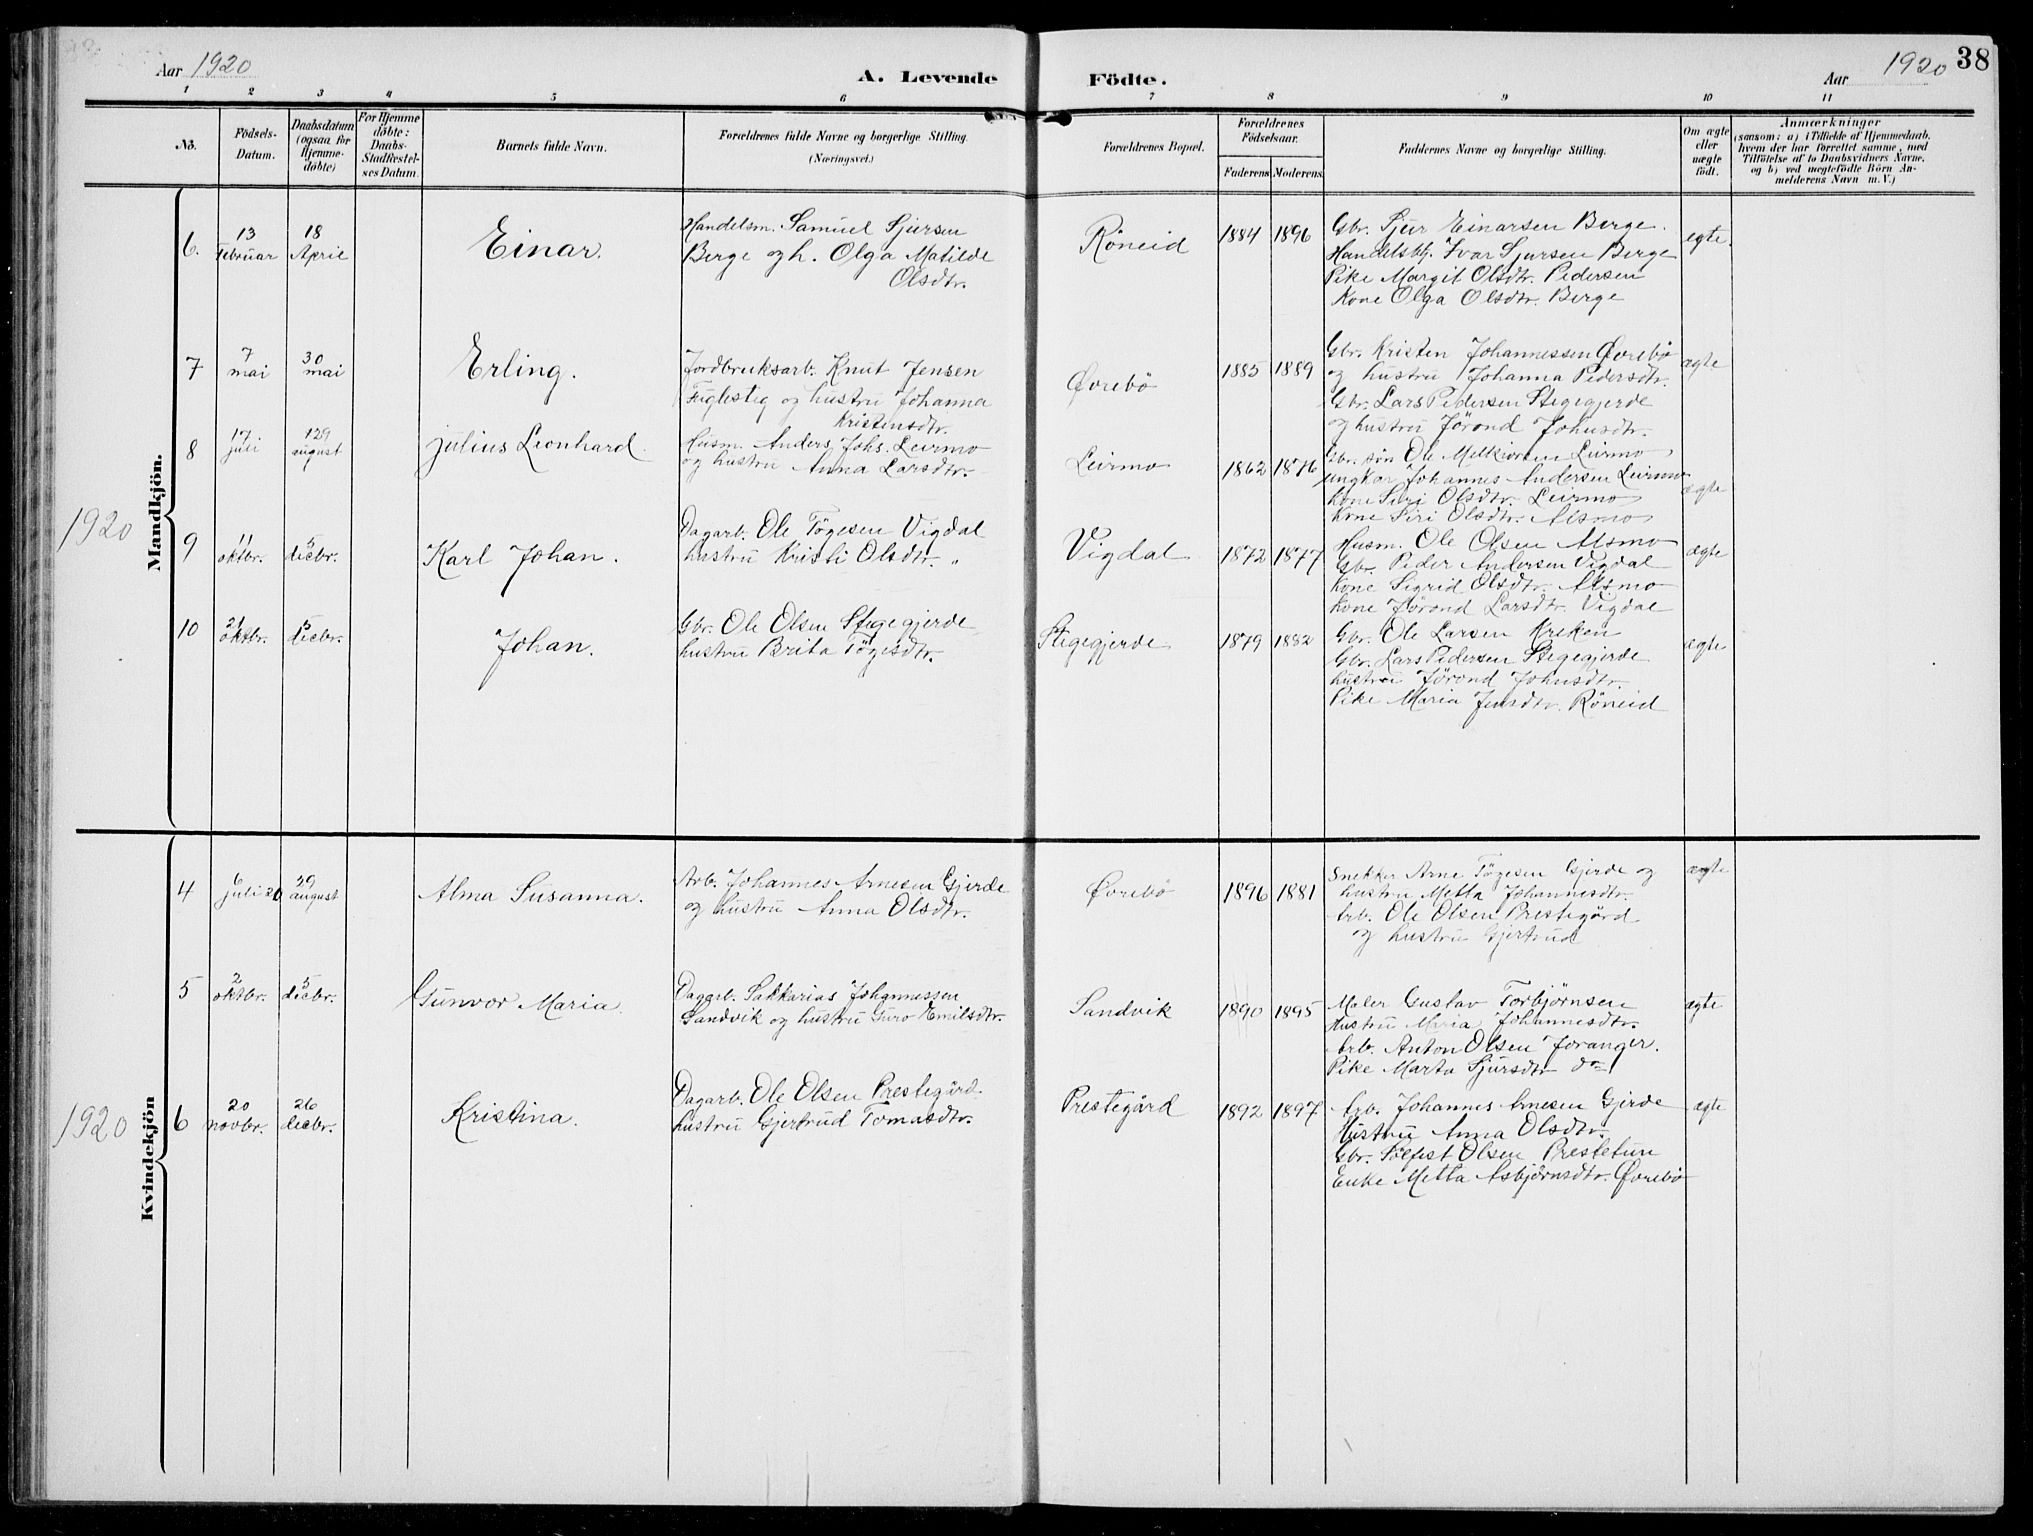 Aar 1920
A. Levende
Födte.
Aar 1920
38
1 2 3 4 5 6 7 8 9 10 11
No.
Födsels-
Datum.
Daabsdatum
(ogsaa for
Hjemme-
döbte)
For Hjemme
döbte:
Daabs-
Stadfæstel-
ses Datum.
Barnets fulde Navn.
Forældrenes fulde Navne og borgerlige Stilling.
(Næringsvei.)
Forældrenes Bopæl.
Forældrenes
Födselsaar.
Faderens Moderens
Faddernes Navne og borgerlige Stilling.
Om ægte
eller
uægte
födt.
Anmærkninger
(saasom: a) i Tilfælde af Hjemmedaab,
hvem der har forrettet samme, med
Tilföielse af to Daabsvidners Navne,
og b) ved uægtefödte Börn An-
melderens Navn m. V.)
Mandkjön.
1920
6.
13
Februar
18
April
Einar.
Handelsm. Samuel Sjursen
Berge og h. Olga Matilde
Olsdtr.
Röneid
1884 1896
Gbr. Sjur Einarsen Berge.
Handelsbtj. Ivar Sjursen Berge
Pike Margit Olsdtr. Pedersen
Kone Olga Olsdtr. Berge
egte.
7
7
mai
30
mai
Erling.
Jordbruksarb. Knut Jensen
Fuglesteg og hustru Johanna
Kristensdtr.
Øvrebö
1885 1889
Gbr. Kristen Johannessen Øvrebö
og hustru Johanna Pedersdtr.
Gbr. Lars Pedersen Stegegjerde
og hustru Jörond Johnsdtr.
ægte
8
17
juli
29
august
Julius Leonhard.
Husm. Anders Johs. Leirmo
og hustru Anna Larsdtr.
Leirmo
1862 1876
Gbr. sön Ole Melkiorsen Leirmo
ungkar Johannes Andersen Leirmo
Kone Siri Olsdtr. Leirmo
Kone Siri Olsdtr. Alsmo
ægte
9
11
oktbr.
5
decbr.
Karl Johan.
Dagarb. Ole Tögesen Vigdal
hustru Kristi Olsdtr. "
Vigdal
1872 1877
Husm. Ole Olsen Alsmo
Gbr. Peder Andersen Vigdal
Kone Sigrid Olsdtr. Alsmo
Kone Jörond Larsdtr. Vigdal
ægte
10
21
oktbr.
5
decbr.
Johan.
Gbr. Ole Olsen Stegegjerde
hustru Brita Tögesdtr.
Stegegjerde
1879 1882
Gbr. Ole Larsen Kreken
Gbr. Lars Pedersen Stegegjerde
hustru Jörond Johnsdtr.
Pike Maria Jensdtr. Röneid
ægte
Kvindekjön
1920
4
6
juli 20
29
august
Alma Susanna.
Arb. Johannes Arnesen Gjerde
og hustru Anna Olsdtr.
Øvrebö
1896 1881
Snekker Arne Tögesen Gjerde og
hustru Metta Johannesdtr.
Arb. Ole Olsen Prestegård
og hustru Gjertrud
ægte
5
2
oktbr.
5
decbr.
Gunvor Maria
Dagarb. Sakkarias Johannessen
Sandvik og hustru Guro Emilsdtr.
Sandvik
1890 1895
Maler Gustav Torbjørnsen
Hustru Maria Johannesdtr.
Arb. Anton Olsen Joranger.
Pike Marta Sjursdtr do
ægte
6
20
novbr.
26
decbr.
Kristina.
Dagarb. Ole Olsen Prestegård.
hustru Gjertrud Tomasdtr.
Prestegård
1892 1897
Arb. Johannes Arnesen Gjerde
Hustru Anna Olsdtr.
Gbr. Sölfest Olsen Prestetun
Enke Metta Asbjørnsdtr. Øvrebö
ægte